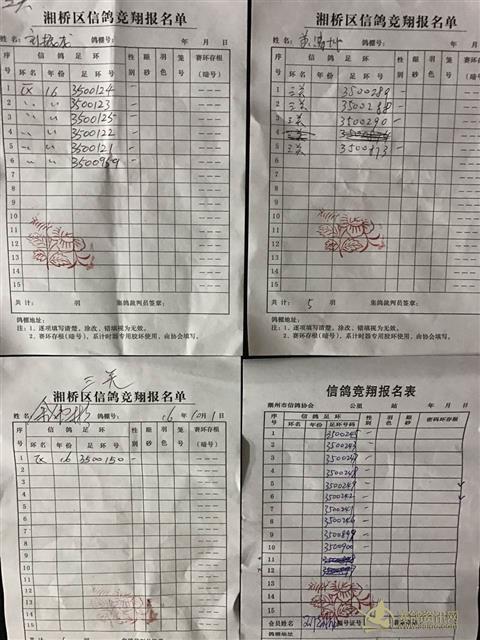 三关
湘桥区信鸽竞翔报名单
姓名: 鸽棚号: 年 月 日
序号 信鸽足环 性别 眼砂 羽色 笼号 赛环存根(暗号)
环名 年份 足环号
1 16 3500124 一
2 〃 〃 3500123 一
3 〃 〃 3500125 一
4 〃 〃 3500122 一
5 〃 〃 3500121 一
6 〃 〃 3500959 一
7
8
9
10
11
12
13
14
15
共计: 羽 集鸽裁判员签章:
鸽棚地址:
注:1、逐项填写清楚,涂改、错填视为无效。
2、赛环存根(暗号),系计时器专用胶环使用,由协会填写。
湘桥区信鸽竞翔报名单
姓名: 鸽棚号: 年 月 日
序号 信鸽足环 性别 眼砂 羽色 笼号 赛环存根(暗号)
环名 年份 足环号
1 三关 3500289 一
2 三关 3500288 一
3 三关 3500290 一
4 三关
5 三关 3500873 一
6
7
8
9
10
11
12
13
14
15
共计: 5 羽 集鸽裁判员签章:
鸽棚地址:
注:1、逐项填写清楚,涂改、错填视为无效。
2、赛环存根(暗号),系计时器专用胶环使用,由协会填写。
三关
湘桥区信鸽竞翔报名单
姓名: 鸽棚号: 16年10月1日
序号 信鸽足环 性别 眼砂 羽色 笼号 赛环存根(暗号)
环名 年份 足环号
1 16 3500150 一
2
3
4
5
6
7
8
9
10
11
12
13
14
15
信鸽竞翔报名表
潮州市信鸽协会 公里 站 年 月 日
序号 信鸽足环 性别 羽色 眼砂 密码环存根
环名 年份 足环号码
1 3500245 一
2 3500243 一
3 一
4 3500248 一
5 3500249 一
6 3500242 一
7 3500241 一
8 一
9 3500899 一
10 3500900 一
11
12
13
14
15
会员姓名 棚号证号